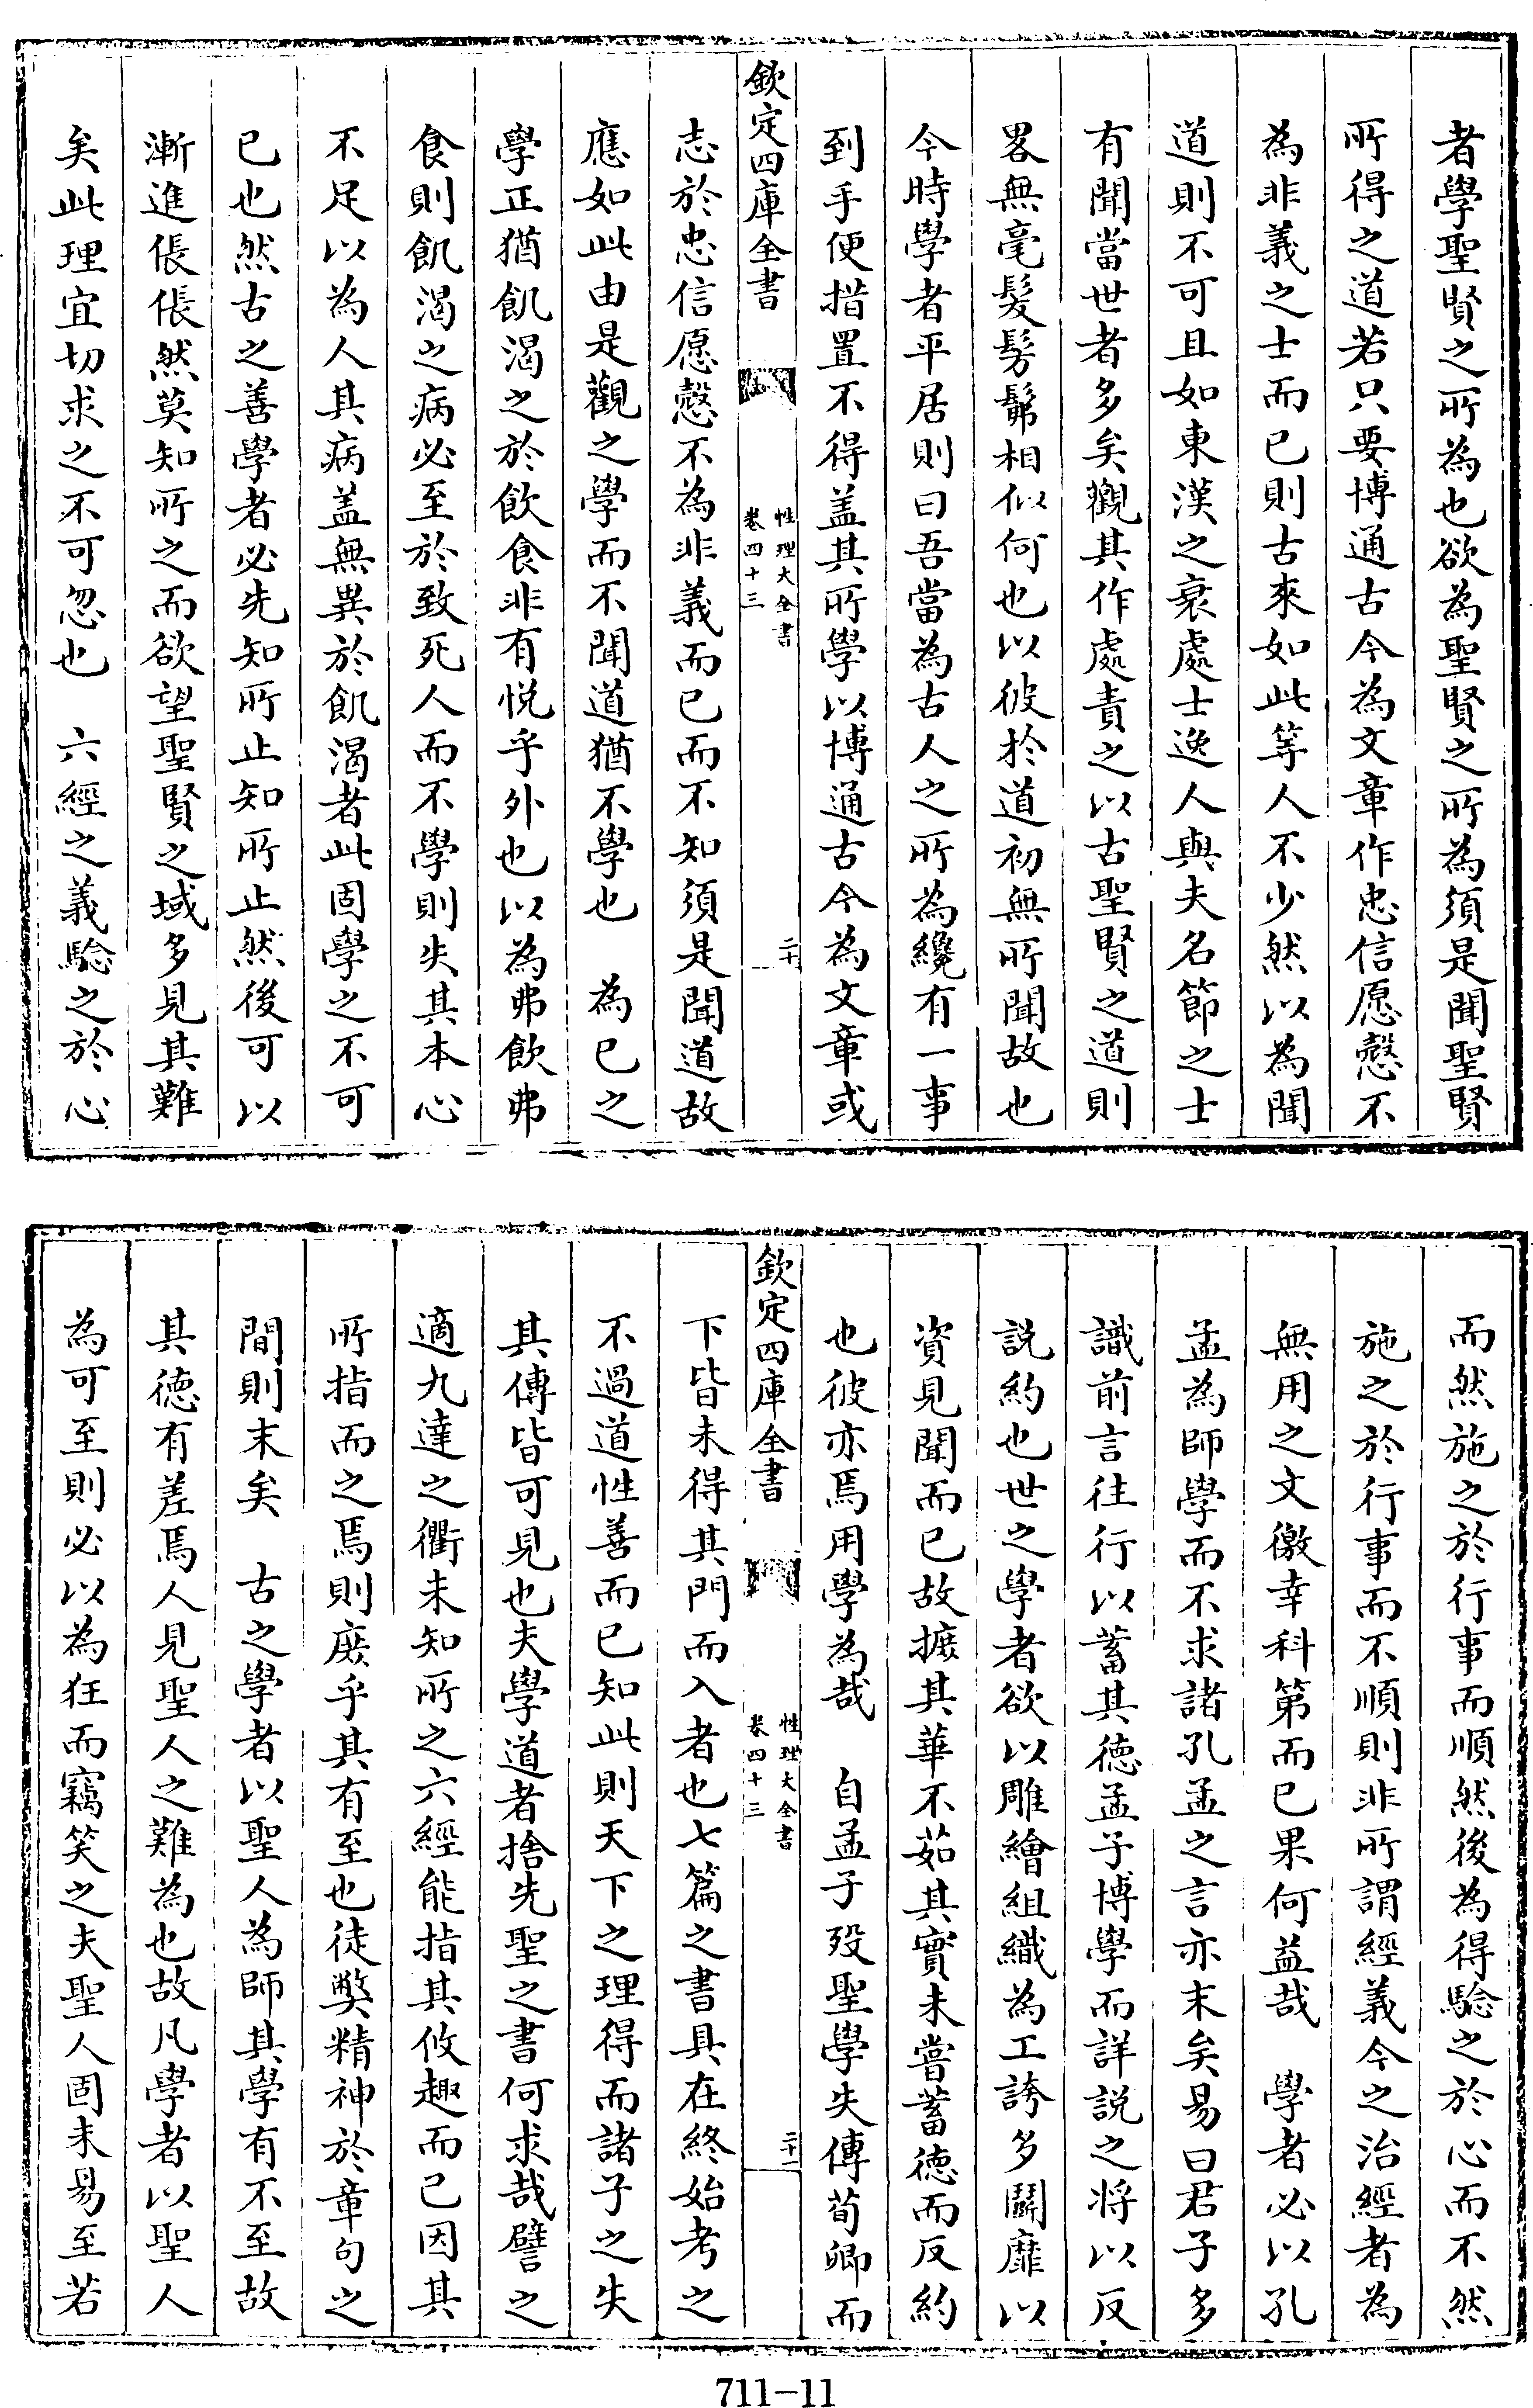 者學聖賢之所為也欲為聖賢之所為須是聞聖賢
所得之道若只要博通古今為文章作忠信愿慤不
為非義之士而已則古來如此等人不少然以為聞
道則不可且如東漢之衰處士逸人與夫名節之士
有聞當世者多矣觀其作處責之以古聖賢之道則
畧無毫髮髣髴相似何也以彼於道初無所聞故也
今時學者平居則曰吾當為古人之所為纔有一事
到手便措置不得盖其所學以博通古今為文章或
欽定四庫全書
性理大全書
卷四十三
二十
志於忠信愿慤不為非義而已而不知須是聞道故
應如此由是觀之學而不聞道猶不學也　為已之
學正猶飢渴之於飲食非有悦乎外也以為弗飲弗
食則飢渴之病必至於致死人而不學則失其本心
不足以為人其病盖無異於飢渴者此固學之不可
已也然古之善學者必先知所止知所止然後可以
漸進倀倀然莫知所之而欲望聖賢之域多見其難
矣此理宜切求之不可忽也　六經之義驗之於心
而然施之於行事而順然後為得驗之於心而不然
施之於行事而不順則非所謂經義今之治經者為
無用之文徼幸科第而已果何益哉　學者必以孔
孟為師學而不求諸孔孟之言亦末矣易曰君子多
識前言往行以蓄其徳孟子博學而詳説之将以反
説約也世之學者欲以雕繪組織為工誇多鬭靡以
資見聞而已故摭其華不茹其實未嘗蓄徳而反約
也彼亦焉用學為哉　自孟子歿聖學失傳荀卿而
欽定四庫全書
性理大全書
卷四十三
二十一
下皆未得其門而入者也七篇之書具在終始考之
不過道性善而已知此則天下之理得而諸子之失
其傳皆可見也夫學道者捨先聖之書何求哉譬之
適九達之衢未知所之六經能指其攸趣而已因其
所指而之焉則庶乎其有至也徒弊精神於章句之
間則末矣　古之學者以聖人為師其學有不至故
其徳有差焉人見聖人之難為也故凡學者以聖人
為可至則必以為狂而竊笑之夫聖人固未易至若
711-11